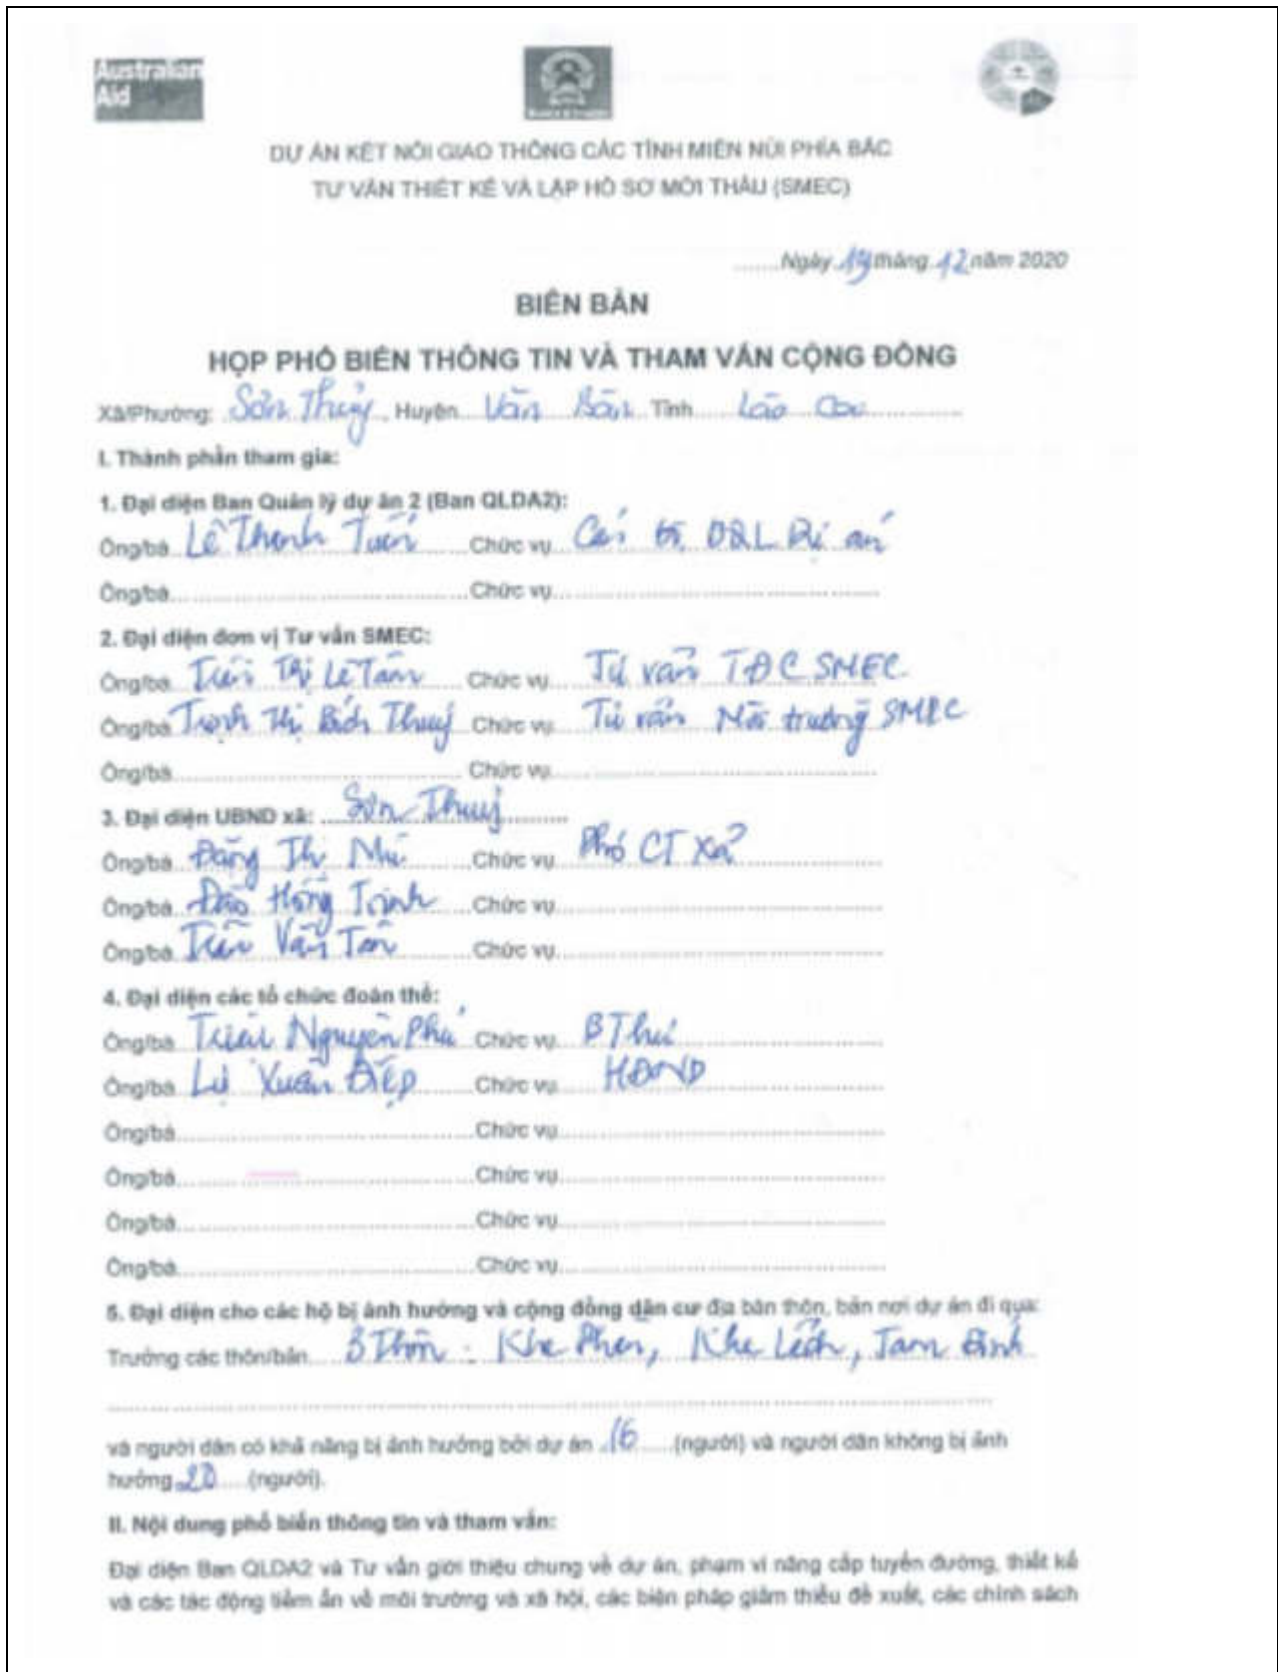 Australian
Aid
DỰ ÁN KẾT NỐI GIAO THÔNG CÁC TỈNH MIỀN NÚI PHÍA BẮC
TƯ VẤN THIẾT KẾ VÀ LẬP HỒ SƠ MỜI THẦU (SMEC)
.......Ngày tháng 12 năm 2020
BIÊN BẢN
HỌP PHỔ BIẾN THÔNG TIN VÀ THAM VẤN CỘNG ĐỒNG
Xã/Phường: Sơn Thủy Huyện Văn Bàn Tỉnh Lào Cai
I. Thành phần tham gia:
1. Đại diện Ban Quản lý dự án 2 (Ban QLDA2):
Ông/bà Lê Thanh Tuấn Chức vụ Cán bộ QL Dự án
Ông/bà Chức vụ
2. Đại diện đơn vị Tư vấn SMEC:
Ông/bà Thị Lê Tâm Chức vụ Tư vấn TĐC SMEC
Ông/bà Trịnh Thị Bích Thuỷ Chức vụ Tư vấn Môi trường SMEC
Ông/bà Chức vụ
3. Đại diện UBND xã: Sơn Thuỷ
Ông/bà Đặng Thị Chức vụ Phó CT Xã
Ông/bà Đào Hồng Trình Chức vụ
Ông/bà Văn Chức vụ
4. Đại diện các tổ chức đoàn thể:
Ông/bà Nguyên Phú Chức vụ B Thư
Ông/bà Xuân Điệp Chức vụ HĐND
Ông/bà Chức vụ
Ông/bà Chức vụ
Ông/bà Chức vụ
Ông/bà Chức vụ
5. Đại diện cho các hộ bị ảnh hưởng và cộng đồng dân cư địa bàn thôn, bản nơi dự án đi qua:
Trưởng các thôn/bản 3 Thôn: Khe Phen, Khe Lếch, Tam Đỉnh
và người dân có khả năng bị ảnh hưởng bởi dự án 16 (người) và người dân không bị ảnh
hưởng 20 (người).
II. Nội dung phổ biến thông tin và tham vấn:
Đại diện Ban QLDA2 và Tư vấn giới thiệu chung về dự án, phạm vi nâng cấp tuyến đường, thiết kế
và các tác động tiềm ẩn về môi trường và xã hội, các biện pháp giảm thiểu đề xuất, các chính sách